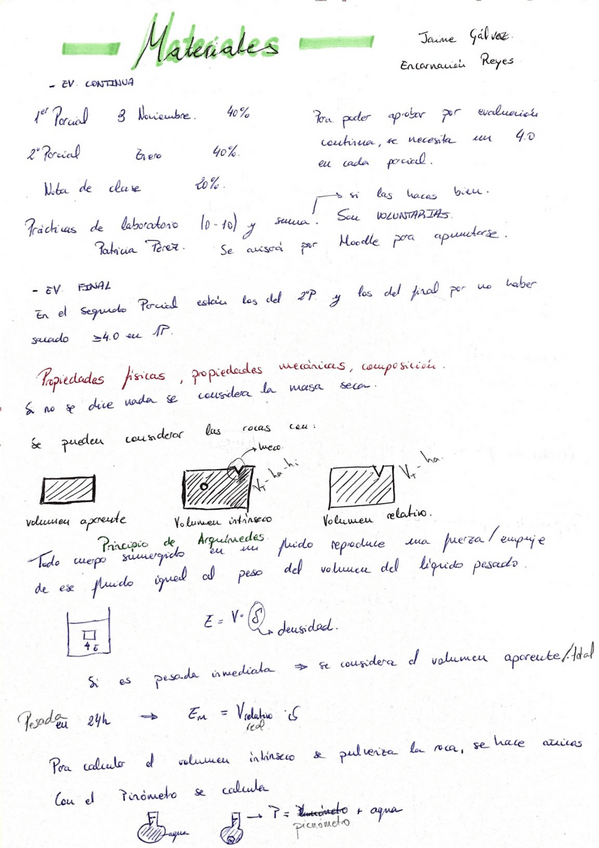 Materiales
Jaime Gálvez
Encarnación Reyes
- EV. CONTINUA
1er Parcial 3 Noviembre. 40%
2º Parcial Enero 40%.
Nota de clase 20%.
Para poder aprobar por evaluación
continua, se necesita un 4.0
en cada parcial.
→ si las haces bien.
Prácticas de laboratorio (0-10) y suma. Son VOLUNTARIAS.
Patricia Pérez. Se avisará por Moodle para apuntarse.
- EV. FINAL
En el Segundo Parcial están los del 2ºP y los del final por no haber
sacado ≥4.0 en 1P.
Propiedades físicas, propiedades mecánicas, composición.
Si no se dice nada se considera la masa seca.
Se pueden considerar las rocas con:
→ hueco
VT - ha - hi
VT - ha
volumen aparente
Volumen intrínseco
Volumen relativo.
Principio de Arquímedes
Todo cuerpo sumergido en un fluido reproduce una fuerza/empuje
de ese fluido igual al peso del volumen del líquido pesado.
E = V · δ
→ densidad.
E
Si es pesada inmediata ⇒ se considera el volumen aparente/total
Pesada en 24h ⇒ Em = Vrelativo · δ
real
Para calcular el volumen intrínseco se pulveriza la roca, se hace
Con el Picnómetro se calcula
agua
→ P = + agua
picnómetro